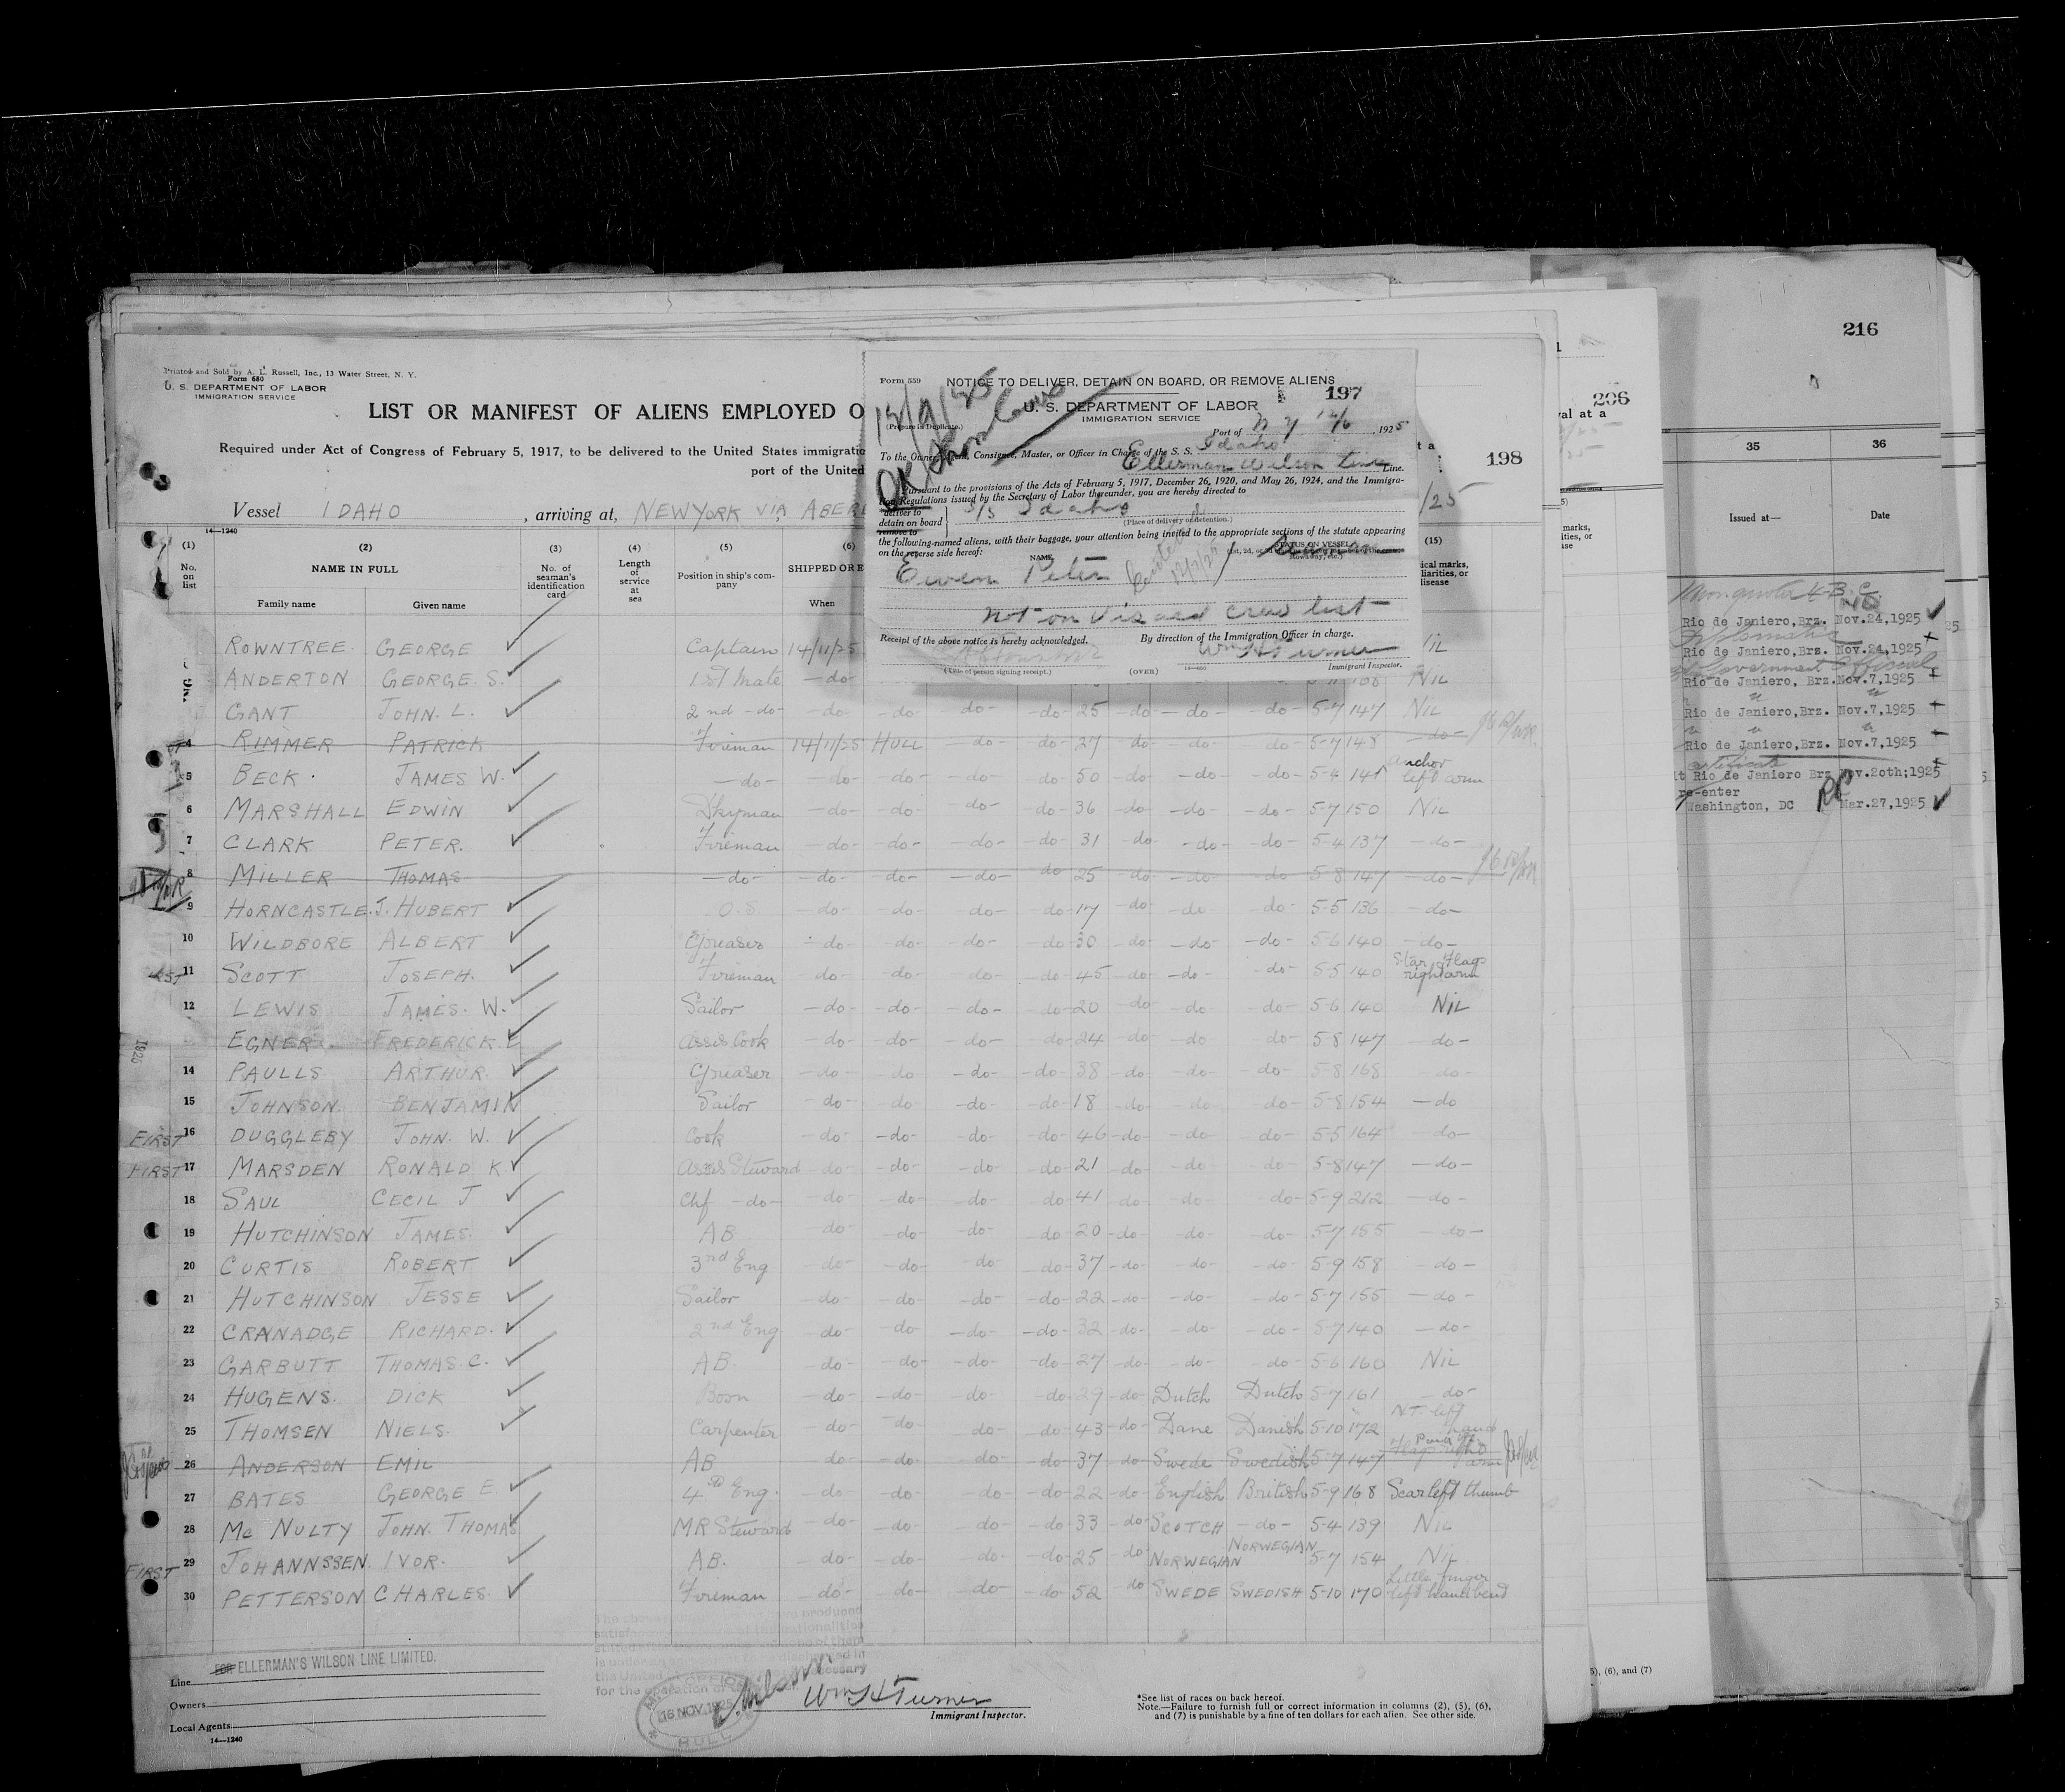 Printed and Sold by A. L. Russell, Inc., 13 Water Street, N. Y.
Form 680
U. S. DEPARTMENT OF LABOR
IMMIGRATION SERVICE
LIST OR MANIFEST OF ALIENS EMPLOYED O
Required under Act of Congress of February 5, 1917, to be delivered to the United States immigratio
port of the United
Vessel IDAHO, arriving at, NEW YORK VIA ABER
198
/25
14—1240
(1) (2) (3) (4) (5) (6) (15)
No. on list NAME IN FULL No. of seaman's identification card Length of service at sea Position in ship's company SHIPPED OR E
Family name Given name When
Form 559 NOTICE TO DELIVER, DETAIN ON BOARD, OR REMOVE ALIENS
197
U. S. DEPARTMENT OF LABOR
IMMIGRATION SERVICE
(Prepare in Duplicate.)
Port of N Y 12/6, 1925
To the Owner, Agent, Consignee, Master, or Officer in Charge of the S. S. Idaho
Ellerman Wilson Line Line.
Pursuant to the provisions of the Acts of February 5, 1917, December 26, 1920, and May 26, 1924, and the Immigra-
tion Regulations issued by the Secretary of Labor thereunder, you are hereby directed to
deliver to
detain on board S/S Idaho
remove to
(Place of delivery or detention.)
the following-named aliens, with their baggage, your attention being invited to the appropriate sections of the statute appearing
on the reverse side hereof:
NAME STATUS ON VESSEL
Owen Peter Seaman
not on visaed crew list
Receipt of the above notice is hereby acknowledged. By direction of the Immigration Officer in charge.
Wm H Turner
(Title of person signing receipt.) (OVER) Immigrant Inspector.
ROWNTREE GEORGE Captain 14/11/25 Nil
ANDERTON GEORGE S. 1st Mate -do- 168 Nil
GANT JOHN. L. 2nd -do- -do- -do- -do- -do- 25 -do- -do- -do- 5-7 147 Nil
4 RIMMER PATRICK Fireman 14/11/25 HULL -do- -do- 27 -do- -do- -do- 5-7 148 -do-
5 BECK. JAMES W. -do- -do- -do- -do- -do- 50 -do- -do- -do- 5-4 141 Anchor left arm
6 MARSHALL EDWIN Dkyman -do- -do- -do- -do- 36 -do- -do- -do- 5-7 150 Nil
7 CLARK PETER. Fireman -do- -do- -do- -do- 31 -do- -do- -do- 5-4 137 -do-
8 MILLER THOMAS -do- -do- -do- -do- -do- 25 -do- -do- -do- 5-8 147 -do-
9 HORNCASTLE. J. HUBERT O.S -do- -do- -do- -do- 17 -do- -do- -do- 5-5 136 -do-
10 WILDBORE ALBERT Greaser -do- -do- -do- -do- 30 -do- -do- -do- 5-6 140 -do-
11 SCOTT JOSEPH. Fireman -do- -do- -do- -do- 45 -do- -do- -do- 5-5 140 Star Flags right arm
12 LEWIS JAMES. W. Sailor -do- -do- -do- -do- 20 -do- -do- -do- 5-6 140 Nil
EGNER FREDERICK E Assis Cook -do- -do- -do- -do- 24 -do- -do- -do- 5-8 147 -do-
14 PAULLS ARTHUR. Greaser -do- -do- -do- -do- 38 -do- -do- -do- 5-8 168 -do-
15 JOHNSON BENJAMIN Sailor -do- -do- -do- -do- 18 -do- do- -do- 5-8 154 -do
FIRST 16 DUGGLEBY JOHN. W. Cook -do- -do- -do- -do- 46 -do- -do- -do- 5-5 164 -do-
FIRST 17 MARSDEN RONALD K Assis Steward -do- -do- -do- -do- 21 -do- -do- -do- 5-8 147 -do-
18 SAUL CECIL J Chf -do- -do- -do- -do- -do- 41 -do- -do- -do- 5-9 212 -do-
19 HUTCHINSON JAMES. AB -do- -do- -do- -do- 20 -do- -do- -do- 5-7 155 -do-
20 CURTIS ROBERT 3rd Eng -do- -do- -do- -do- 37 -do- -do- -do- 5-9 158 -do-
21 HUTCHINSON JESSE Sailor -do- -do- -do- -do- 22 -do- -do- -do- 5-7 155 -do-
22 CRANADGE RICHARD. 2nd Eng. -do- -do- -do- -do- 32 -do- -do- -do- 5-7 140 -do-
23 GARBUTT THOMAS. C. AB. -do- -do- -do- -do- 27 -do- -do- -do- 5-6 160 Nil
24 HUGENS. DICK Bosn -do- -do- -do- -do- 29 -do- Dutch Dutch 5-7 161 -do-
25 THOMSEN NIELS. Carpenter -do- -do- -do- -do- 43 -do- Dane Danish 5-10 172 N.T. left hand
26 ANDERSON EMIL AB -do- -do- -do- -do- 37 -do- Swede Swedish 5-7 147
27 BATES GEORGE E. 4th Eng. -do- -do- -do- -do- 22 -do- English British 5-9 168 Scar left thumb
28 Mc NULTY JOHN. THOMAS MR Steward -do- -do- -do- -do- 33 -do- SCOTCH -do- 5-4 139 Nil
FIRST 29 JOHANNSSEN. IVOR. AB. -do- -do- -do- -do- 25 -do- NORWEGIAN NORWEGIAN 5-7 154 Nil
30 PETTERSON CHARLES. Fireman -do- -do- -do- -do- 52 do SWEDE SWEDISH 5-10 170 Little finger left hand bend
Line FOR ELLERMAN'S WILSON LINE LIMITED.
Owners
Local Agents
14—1240
16 NOV. 1925
HULL
Wm H Turner
Immigrant Inspector.
*See list of races on back hereof.
Note.—Failure to furnish full or correct information in columns (2), (5), (6),
and (7) is punishable by a fine of ten dollars for each alien. See other side.
206
val at a
5), (6), and (7)
216
35 36
Issued at— Date
Rio de Janiero, Brz. Nov.24,1925
Diplomatic
Rio de Janiero, Brz. Nov.24,1925
Government Official
Rio de Janiero, Brz. Nov.7,1925
Rio de Janiero, Brz. Nov.7,1925
Rio de Janiero, Brz. Nov.7,1925
Rio de Janiero Brz Nov.20th;1925
re-enter
Washington, DC Mar.27,1925